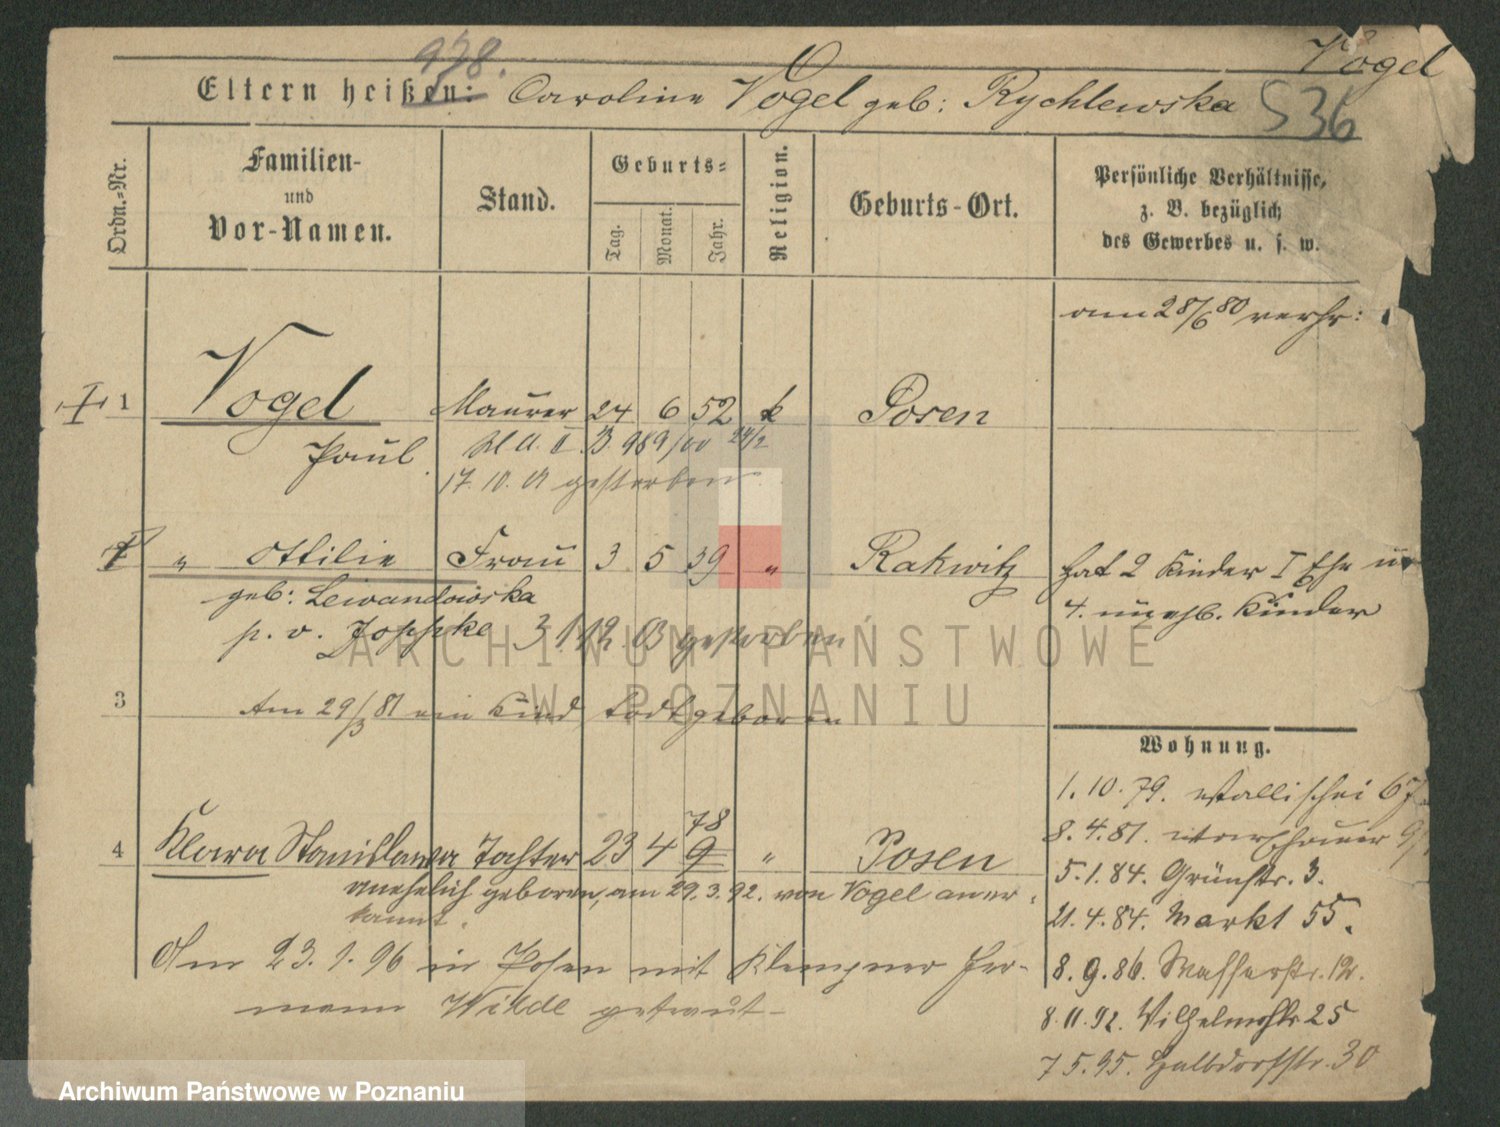 Vogel
938.
Eltern heißen: Caroline Vogel geb: Rychlewska 536
Ordn.-Nr.
Familien-
und
Vor-Namen.
Stand.
Geburts-
Tag.
Monat.
Jahr.
Religion.
Geburts-Ort.
Persönliche Verhältnisse,
z. B. bezüglich
des Gewerbes u. s. w.
am 28/6 80 verhr:
1 Vogel Maurer 24 6 52 k Posen
Paul
17. 10. 01 gestorben
" Ottilie Frau 3 5 39 " Rakwitz hat 2 Kinder I Ehe u
geb: Lewandowska 4. unehl. Kinder
p. v. Joppke 3 1 12 03 gestorben
ARCHIWUM PAŃSTWOWE
W POZNANIU
3 Am 29/3 81 ein Kind todtgeboren
Wohnung.
1. 10. 79. Wallischei 67
8. 4. 81.
5. 1. 84. Grünstr. 3.
21. 4. 84. Markt 55.
8. 9. 86. Wasserstr. 12.
8. 11. 92. Wilhelmstr 25
7 5. 95. Halbdorfstr. 30
78
4 Klara Stanislawa Tochter 23 4 9 " Posen
unehelich geboren, am 29. 3. 92. von Vogel aner-
kannt.
Am 23. 1. 96 in Posen mit Klempner Her-
mann Wilde getraut-
Archiwum Państwowe w Poznaniu